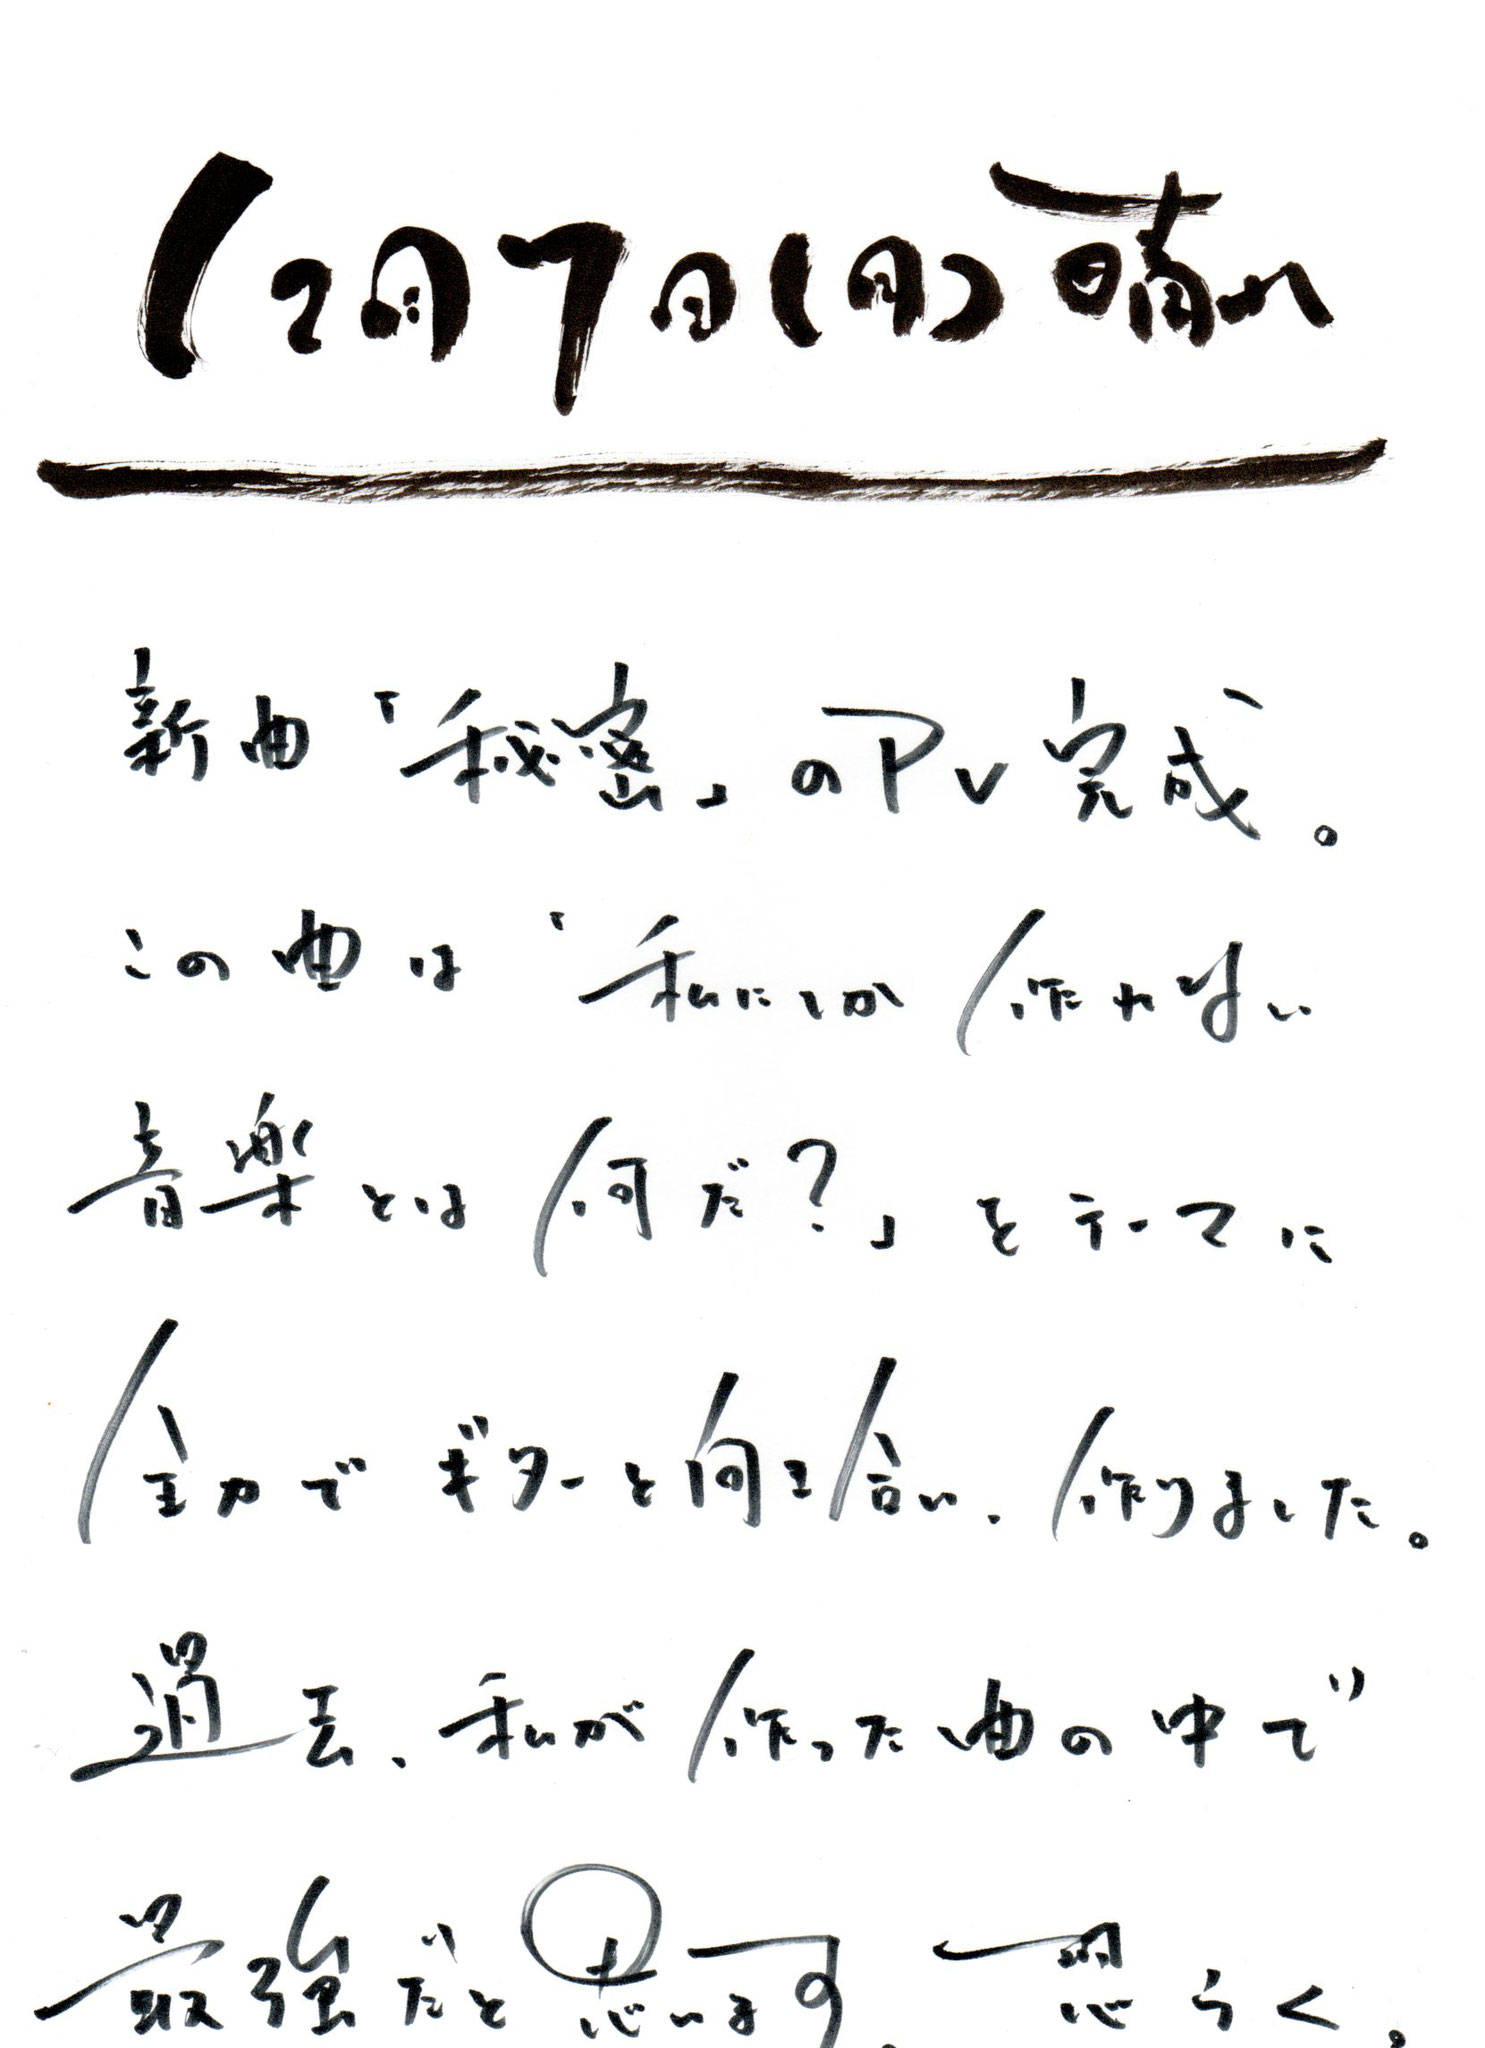 12月7日(月)晴れ
新曲「秘密」のPV完成。
この曲は「私にしか作れない
音楽とは何だ?」をテーマに
全力でギターと向き合い、作りました。
過去、私が作った曲の中で
最強だと思います。恐らく。